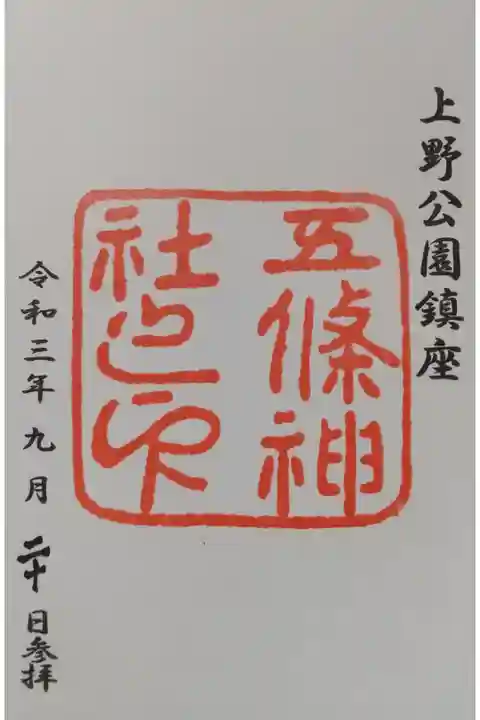 上野公園鎮座
五條神
社之印
令和三年九月二十日参拝